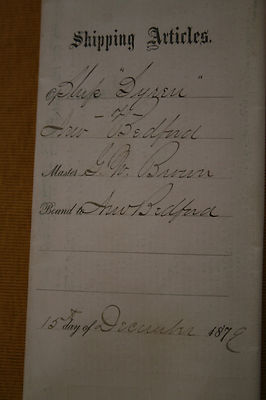 Shipping Articles.
of Ship "Syren"
- of -
New Bedford
Master G. W. Brown
Bound to New Bedford
15th day of December 1879